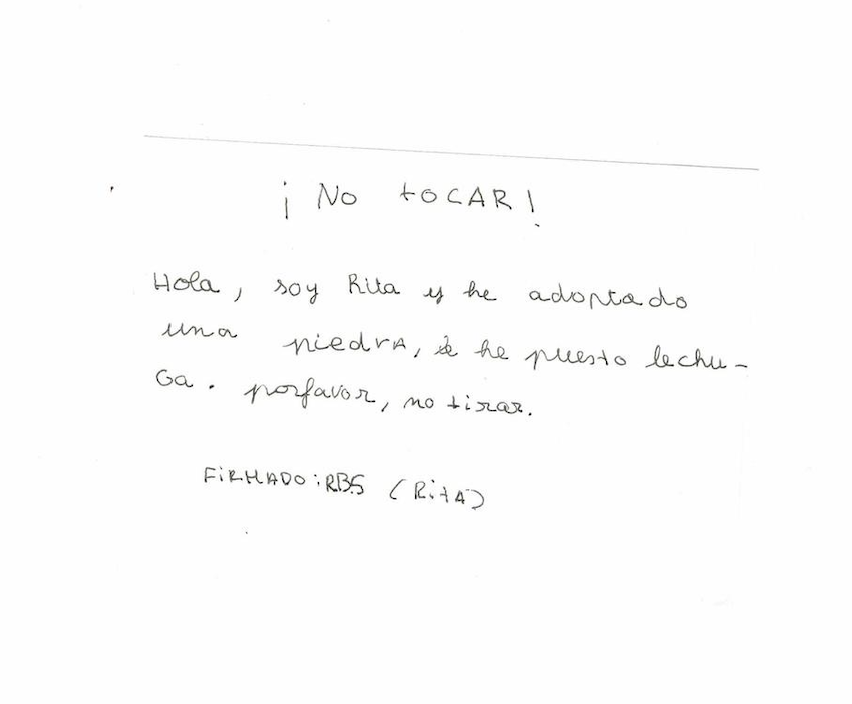 ¡No tocAR!
Hola, soy Rita y he adoptado
una piedrA, le he puesto lechu-
Ga. porfavor, no tirar.
FiRMADO: RBS (RitA)